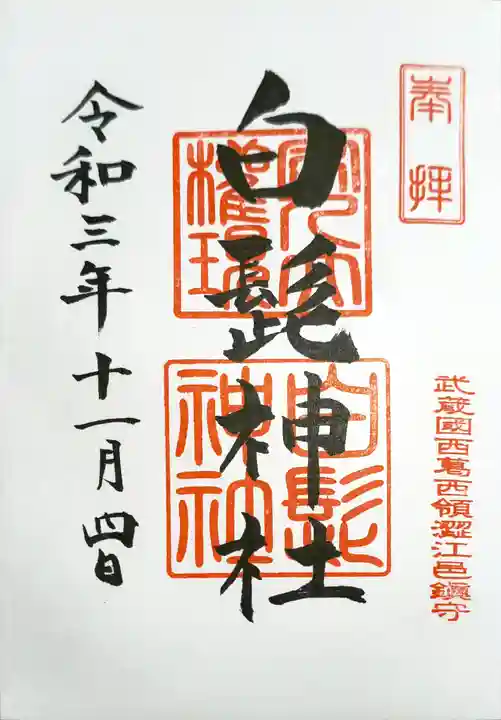 奉拝
武蔵國西葛西領澀江邑鎮守
白髭神社
白髭神社
令和三年十一月四日